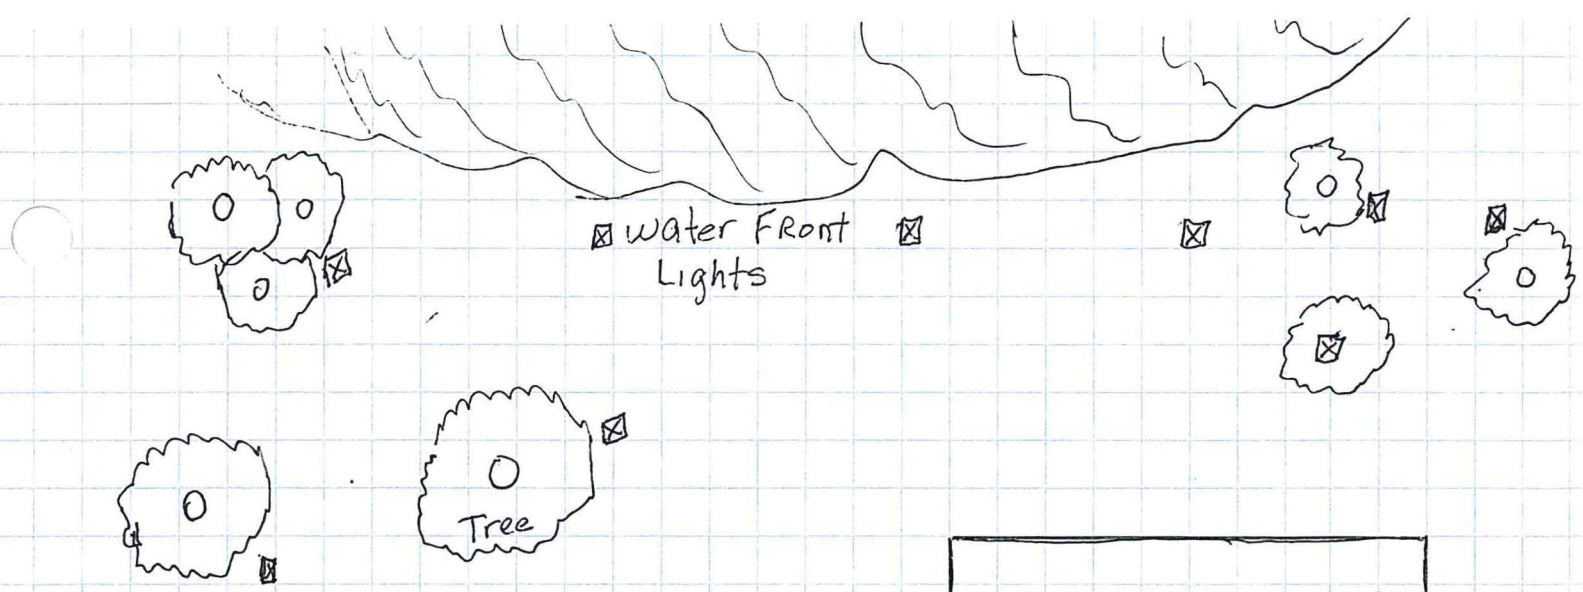 Water Front
Lights
Tree